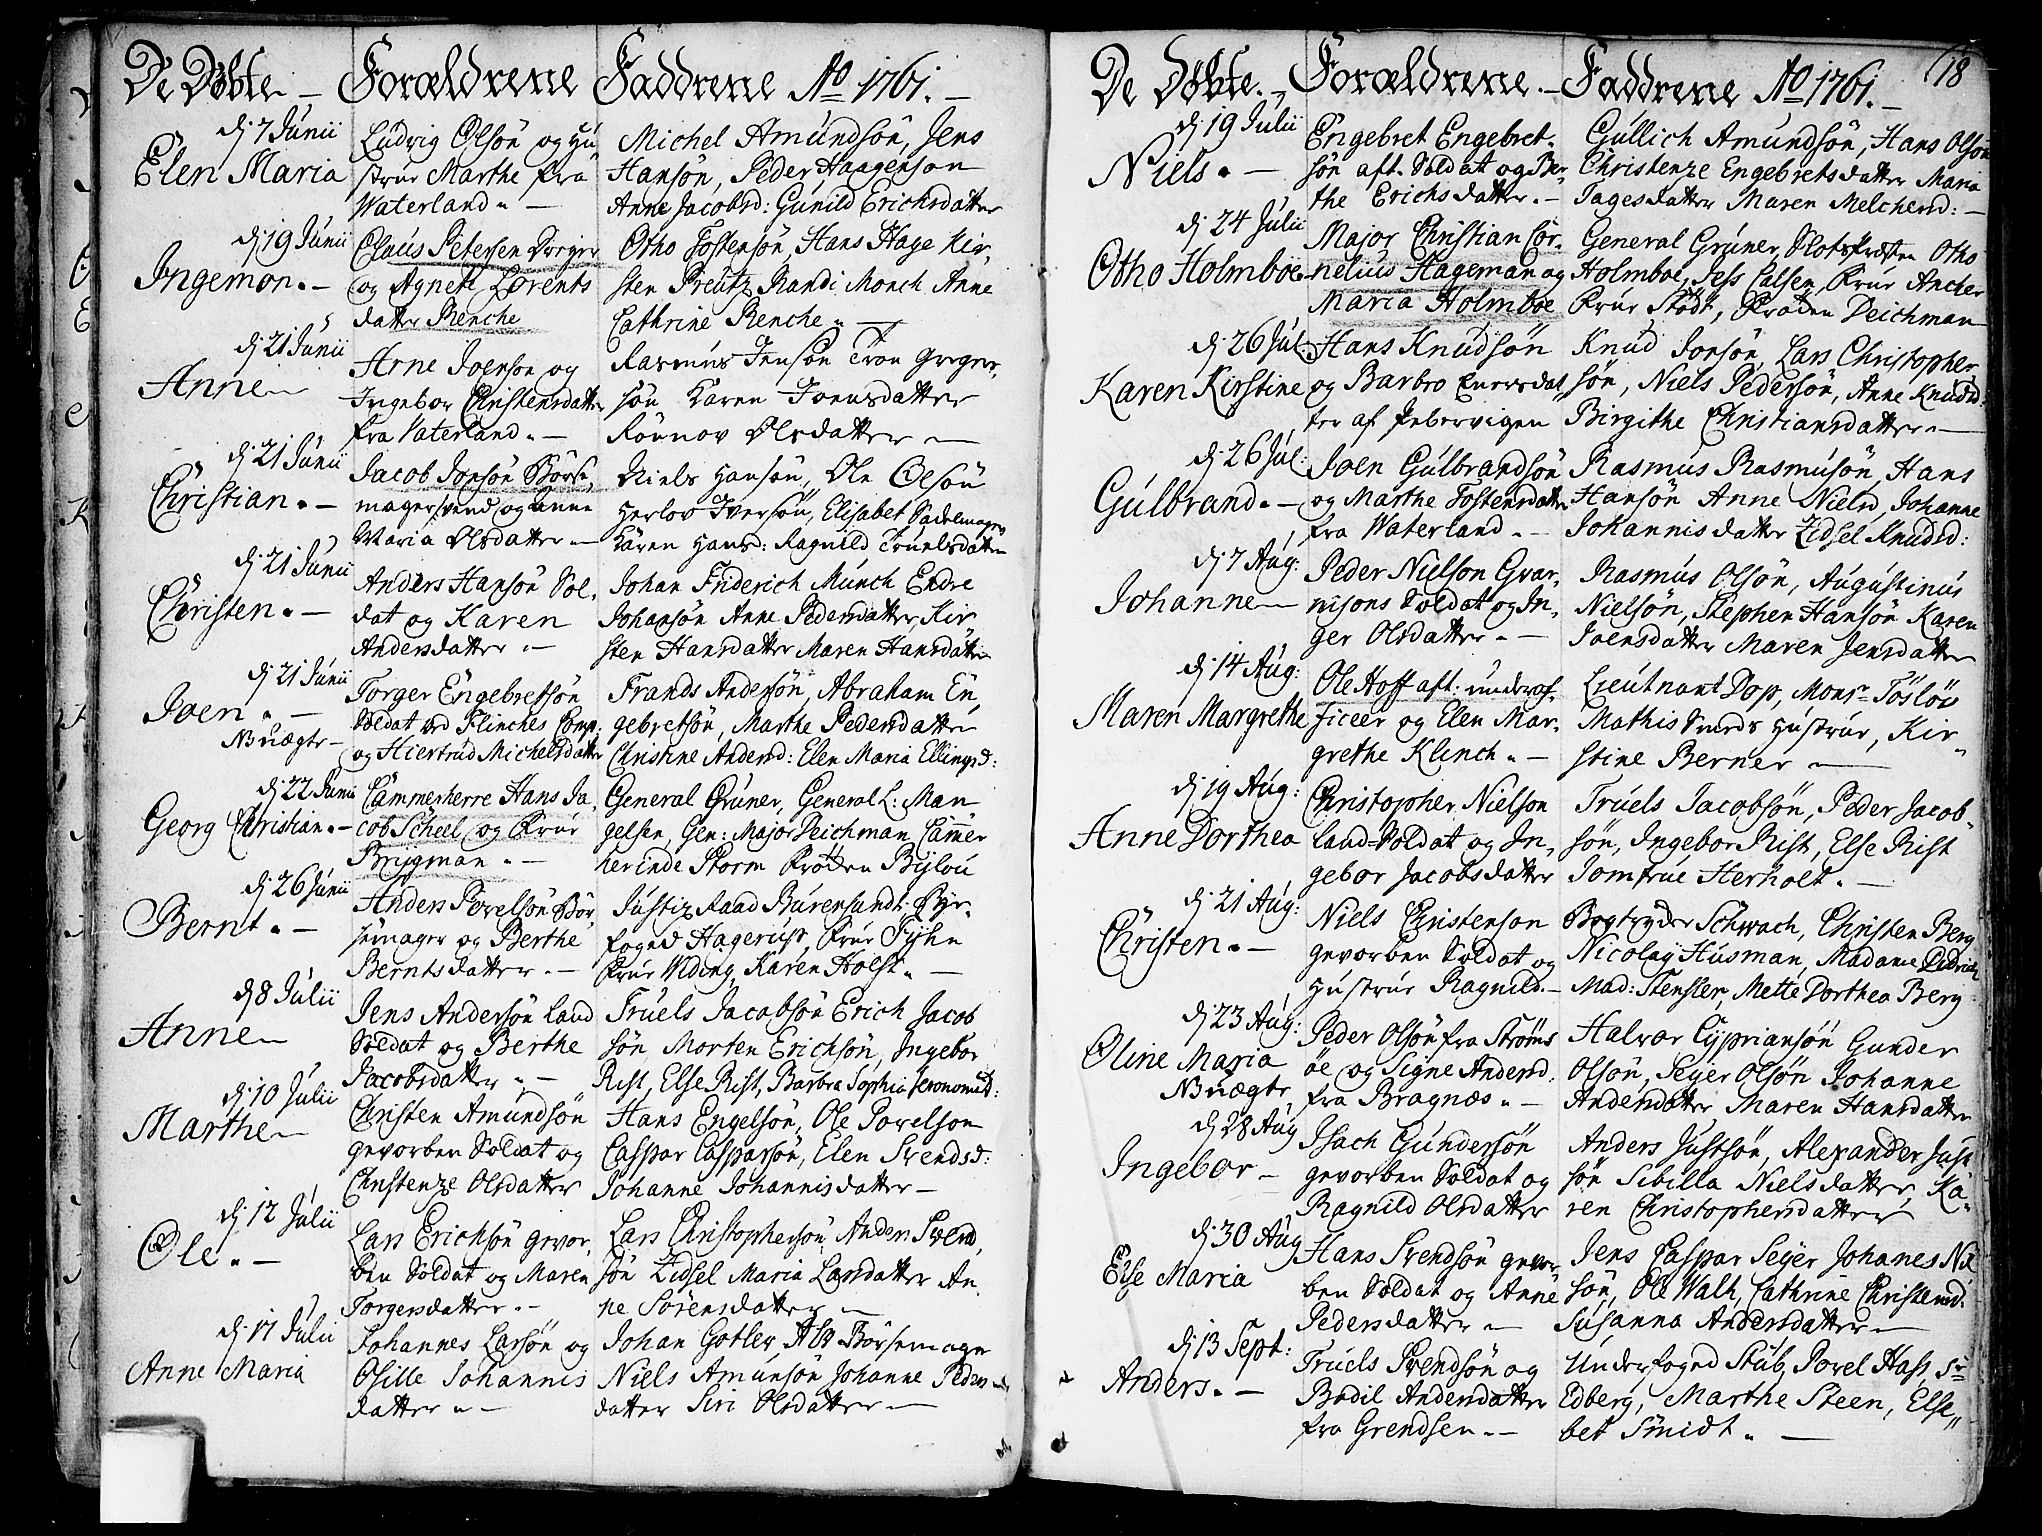 De Döbte – Forældrene Faddrene Ao 1761. –
dj 7 Junii
Elen Maria
Ludvig Olsön og Hu
strue Marthe fra
Waterland. –
Michel Amundsön, Jens
Hansön, Peder Haagenson
Anne Jacobsd: Gunild Erichsdatter
dj 19 Junii
Ingemon. –
Claus Petersen
og Agnete Lorents
datter Renche
Otho Tostensön, Hans Hage Kir,
sten Preütz Randi Monch Anne
Cathrine Renche. –
dj 21 Junii
Anne –
Arne Joenson og
Ingebor Christensdatter
fra Vaterland. –
Rasmus Jensön Tron Greger,
sön Karen Joensdatter
Rönnov Olsdatter –
dj 21 Junii
Christian. –
Jacob Jonsön Börse,
magersvend og Anne
Maria Olsdatter –
Niels Hansön, Ole Olsön
Herlov Iversön, Elisabet Sadelmager
Karen Hansd: Ragnild Truelsdatter
dj 21 Junii
Christen. –
Anders Hansön Sol,
dat og Karen
Andersdatter. –
Johan Friderich Münch Endre
Johansön Anne Pedersdatter Kir
sten Hansdatter Maren Hansdatter
dj 21 Junii
Joen. –
NB uægte –
Torger Engebretsön
Soldat ved Flinches Comp:
og Hiertrud Michelsdatter
Frands Andersön, Abraham En,
gebretsön, Marthe Pedersdatter
Christine Andersd: Elen Maria Ellingsd:
dj 22 Junii
Georg Christian. –
Cammerherre Hans Ja,
cob Scheel og Frue
Brygman. –
General Grüner, General L: Man
gelsen, Gen: Major Deichman Cammer
herinde Storm Fröken Bylou
dj 26 Junii
Bernt. –
Anders Povelsön Bör,
semager og Berthe
Berntsdatter. –
Justiz Raad Burensundt. Byr,
foged Hagerup, Frue Fyhn
Frue Widing, Karen Holst. –
dj 8 Julii
Anne –
Jens Andersön Land
Soldat og Berthe
Jacobsdatter. –
Truels Jacobsön Erich Jacob
sön Morten Erichsön, Ingebor
Rist, Else Rist, Barbra Sophia Jeronomisd:
dj 10 Julii
Marthe –
Christen Amundsön
gevorben Soldat og
Christenze Olsdatter
Hans Engelsön, Ole Povelson
Caspar Casparsön, Elen Svendsd:
Johanne Johannisdatter –
dj 12 Julii
Ole. –
Lars Erichsön gevor,
ben Soldat og Maren
Torgersdatter. –
Lars Christophersön, Anders Svend,
sön Zidsel Maria Larsdatter An,
ne Sörensdatter –
dj 17 Julii
Anne Maria
Johannes Larsön og
Osille Johannis
datter. –
Johan Gotler, Ask Börsemager
Niels Amunsön Johanne Peders
datter Siri Olsdatter –
18
De Döbte. – Forældrene. – Faddrene Ao 1761. –
dj 19 Julii
Niels. –
Engebret Engebret,
sön aft. Soldat og Ber,
the Erichsdatter. –
Gullich Amundsön, Hans Olsön
Christenze Engebretsdatter Maria
Tagesdatter Maren Melchersd: –
dj 24 Julii
Otho Holmboe
Major Christian Cor,
nelius Hageman og
Maria Holmboe
General Grüner, Slotspræsten Otho
Holmboe, Jess Calsen, Frue Ancher
Frue Stödt, Fröken Deichman
dj 26 Jul:
Karen Kirstine
Hans Knudsön
og Barbro Enersdat,
ter af Pebervigen
Knud Jonsön, Lars Christopher
sön, Niels Pedersön, Anne Knudsd:
Birgithe Christiansdatter. –
dj 26 Jul:
Gulbrand. –
Joen Gulbrandsön
og Marthe Tostensdatter
fra Waterland. –
Rasmus Rasmusön, Hans
Hansön Anne Nielsd, Johanne
Johannisdatter Zidsel Knudsd:
dj 7 Aug:
Johanne –
Peder Nielson Gvar,
nisons Soldat og In,
ger Olsdatter. –
Rasmus Olsön, Augustinus
Nielsön, Stephen Hansön Karen
Joensdatter Maren Jensdatter
dj 14 Aug:
Maren Margrethe
Ole Hoff aft: underof,
ficeer og Elen Mar,
grethe Klench. –
Lieutnant Dop, Monsr Töslöv
Mathis Smeds Hustrue, Kir,
stine Berner –
dj 19 Aug:
Anne Dorthea
Christopher Nielson
Land-Soldat og In,
gebor Jacobsdatter
Truels Jacobsön, Peder Jacob,
sön, Ingebor Rist, Else Rist
Jomfrue Herholt. –
dj 21 Aug:
Christen. –
Niels Christenson
gevorben Soldat og
Hustrue Ragnild. –
Bogtryder Schwach, Christen Berg
Nicolay Husman, Madame Didrich
Mad: Stensler, Mette Dorthea Berg
dj 23 Aug:
Oline Maria
NB uægte,
Peder Olsön fra Ströms
öe og Signe Andersd,
fra Bragnæs. –
Halvor Cypriansön Gunder
Olsön, Sejer Olsön Johanne
Andersdatter Maren Hansdatter
dj 28 Aug
Ingebor –
Isach Gundersön
gevorben Soldat og
Ragnild Olsdatter
Anders Justsön, Alexander Just
sön Sibilla Nielsdatter, Ka,
ren Christophersdatter
dj 30 Aug
Else Maria
Hans Svendsön gevor,
ben Soldat og Anne
Pedersdatter –
Jens Caspar Sejer Johanes Niel
sön, Ole Walh, Cathrine Christensd:
Susanna Andersdatter –
dj 13 Sept:
Anders. –
Truels Svendsön og
Bodil Andersdatter
fra Grendsen. –
Underfoged Stub, Povel Hass, Sr
Edberg, Marthe Steen, Else,,
bet Smidt. –